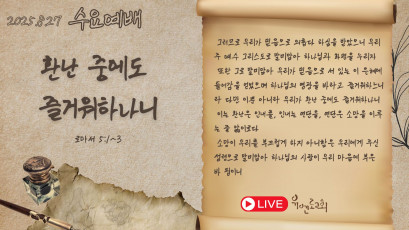 2025.8.27 수요예배
환난 중에도
즐거워하나니
로마서 5:1~3
그러므로 우리가 믿음으로 의롭다 하심을 받았으니 우리
주 예수 그리스도로 말미암아 하나님과 화평을 누리자
또한 그로 말미암아 우리가 믿음으로 서 있는 이 은혜에
들어감을 얻었으며 하나님의 영광을 바라고 즐거워하느니
라 다만 이뿐 아니라 우리가 환난 중에도 즐거워하나니
이는 환난은 인내를, 인내는 연단을, 연단은 소망을 이루
는 줄 앎이로다
소망이 우리를 부끄럽게 하지 아니함은 우리에게 주신
성령으로 말미암아 하나님의 사랑이 우리 마음에 부은
바 됨이니
LIVE